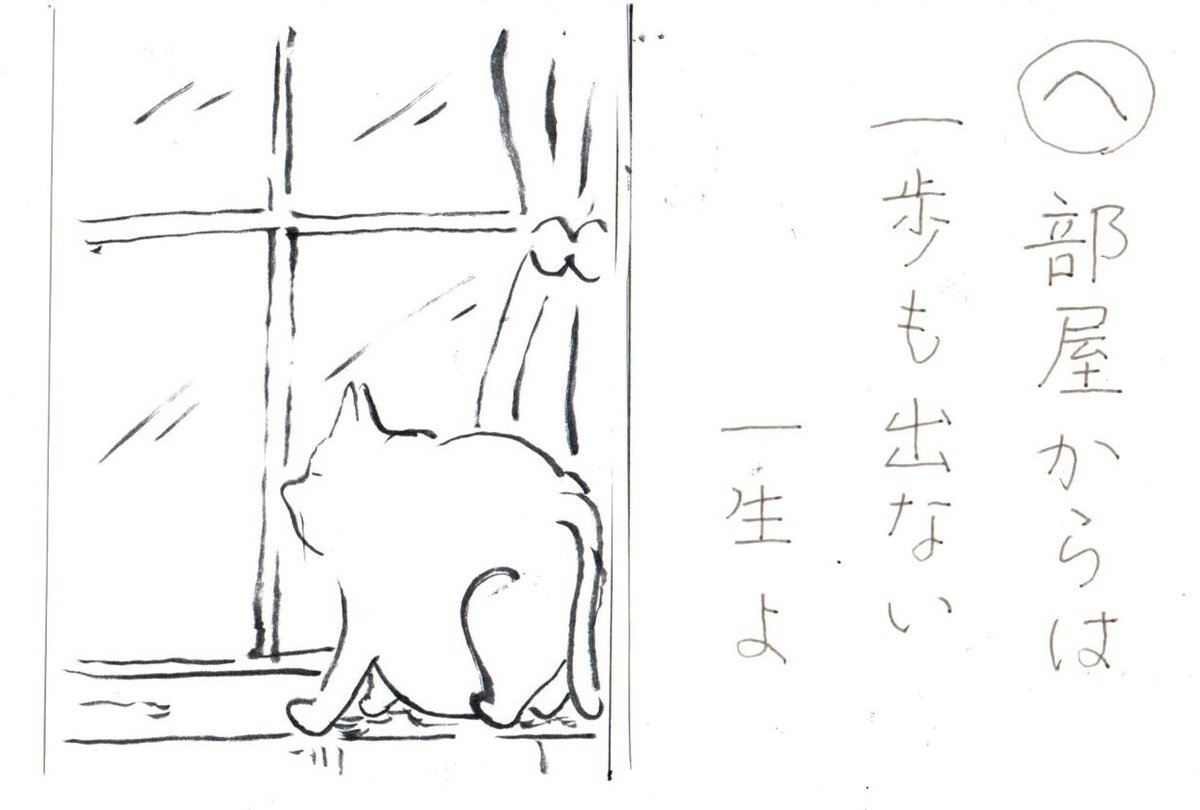 へ 部屋からは
一歩も出ない
一生よ